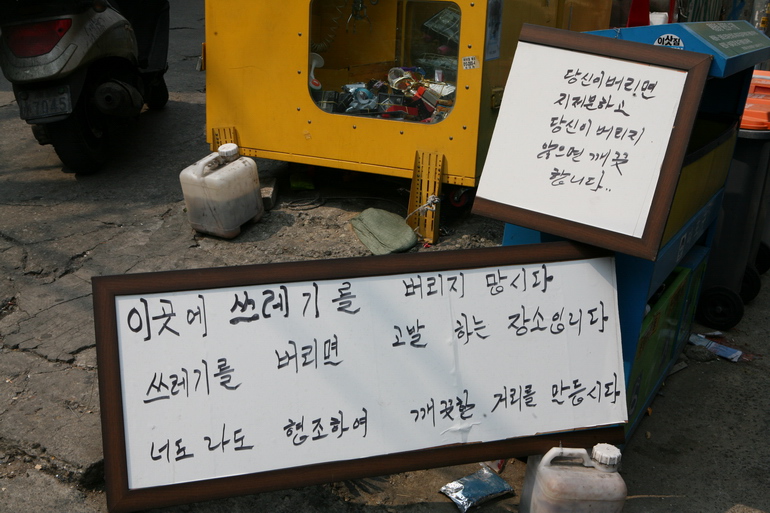 당신이 버리면
지저분하고
당신이 버리지
않으면 깨끗
합니다..
이곳에 쓰레기를 버리지 맙시다
쓰레기를 버리면 고발 하는 장소입니다
너도 나도 협조하여 깨끗한 거리를 만듭시다